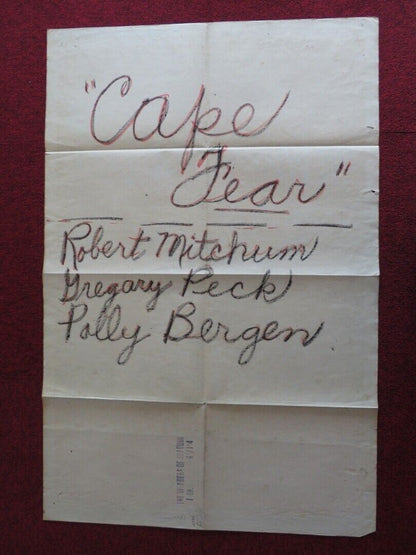 "Cape
Fear"
Robert Mitchum
Gregary Peck
Polly Bergen